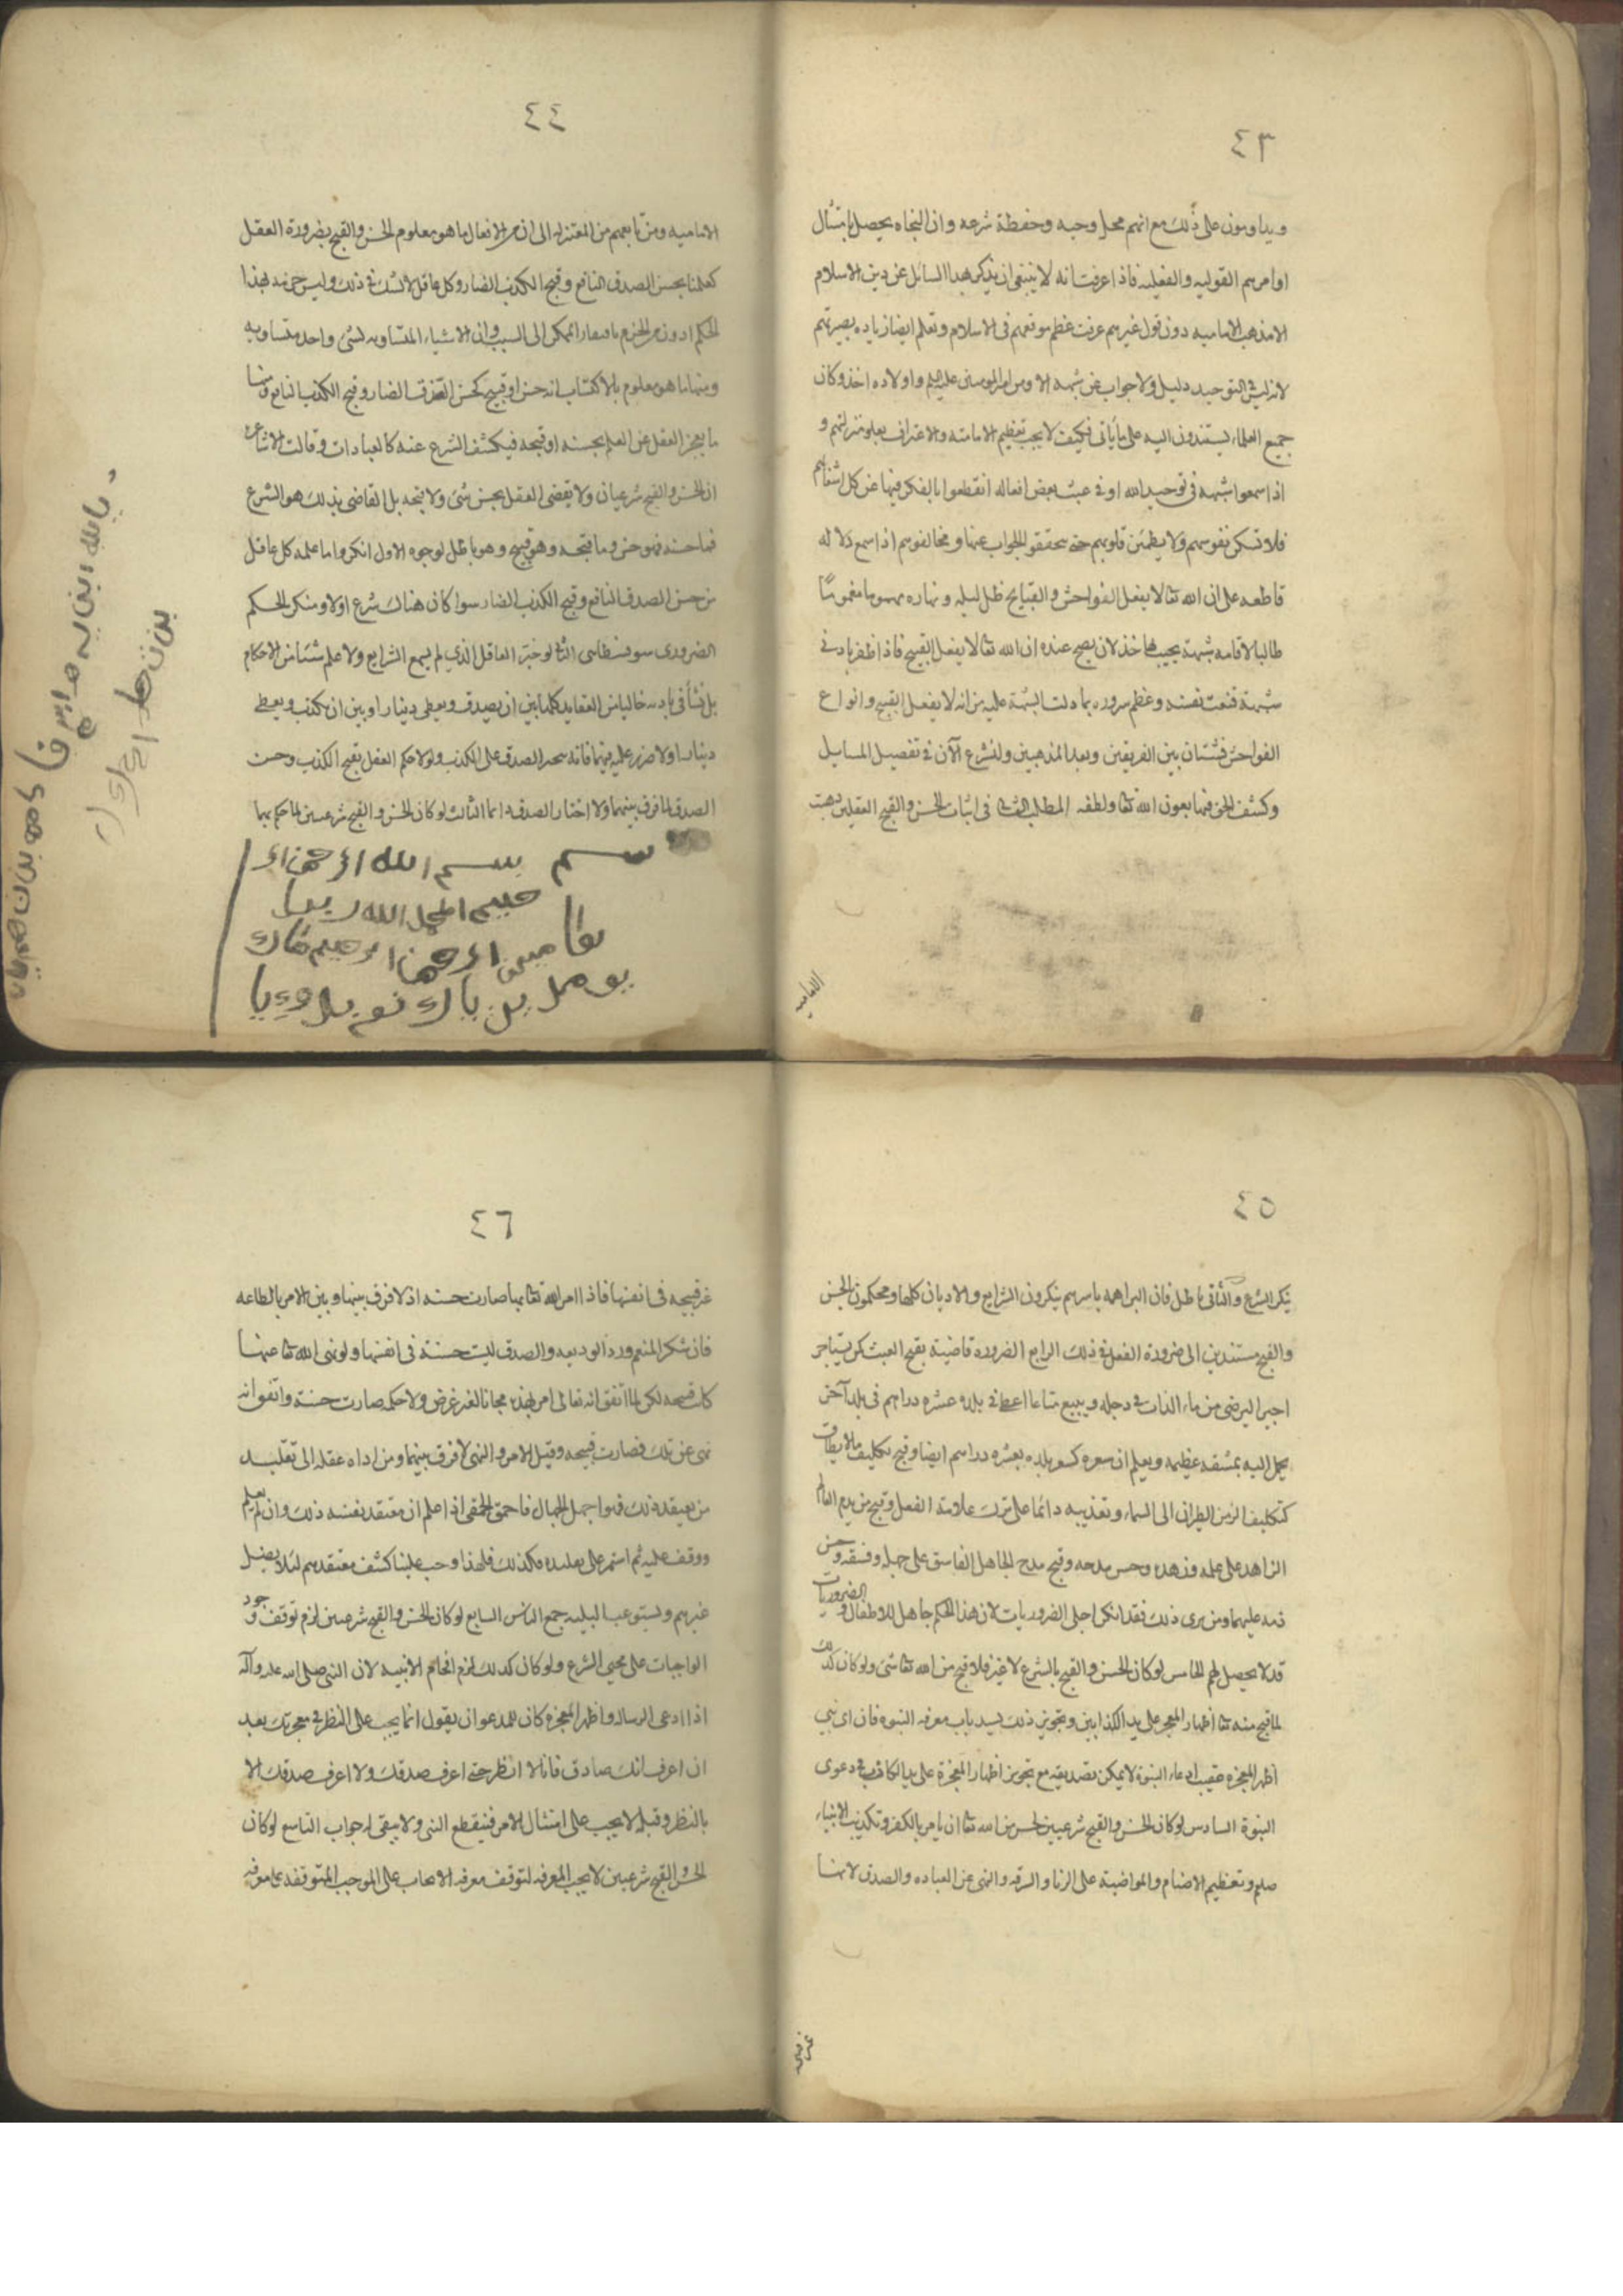 ٤٣
ويداومون على ذلك مع انهم محل وحيه وحفظة شرعه وان النجاه يحصل بامتثال
اوامرهم القوليه والفعليه فاذا عرفت انه لا ينبغى ان يذكر هذا السائل عن دين الاسلام
الا مذهب الاماميه دون قول غيرهم عرفت عظم موقعهم فى الاسلام وتعلم ايضا زياده بصيرتهم
لانه ليس فى التوحيد دليل ولا جواب عن شبهه الا ومن امير المومنين عليه السلم واولاده اخذ وكان
جميع العلماء يستندون اليه على ما يأتى فكيف لا يجب تعظيم الامامته والاعتراف بعلو منزلتهم و
اذا سمعوا شبهه فى توحيد الله او فى عبث بعض افعاله انقطعوا بالفكر فيها عن كل اشغالهم
فلا تسكن نفوسهم ولا يطمئن قلوبهم حتى يتحققو الجواب عنها ومخالفوهم اذا سمع دلاله
قاطعه على ان الله تعا لا يفعل الفواحش والقبايح ظل ليله ونهاره مهموما مغموما
طالبا لاقامه شبهة يجيب بها حذرا ان يصح عنده ان الله تعا لا يفعل القبيح فاذا ظفر بادنى
شبهة قنعت نفسه وعظم سروره بما دلت الشبهة عليه من انه لا يفعل القبيح وانواع
الفواحش فشتان بين الفريقين وبعد المذهبين ولنشرع الآن فى تفصيل المسايل
وكشف الحق فيها بعون الله تعا ولطفه المطلب الثانى فى اثبات الحسن والقبح العقليين ذهبت
الاماميه
٤٤
الاماميه ومن تابعهم من المعتزله الى ان من الافعال ما هو معلوم الحسن والقبح بضرورة العقل
كعلمنا بحسن الصدق النافع وقبح الكذب الضار وكل عاقل لا يشك فى ذلك وليس جزمه بهذا
الحكم ادون من الجزم بافتقار الممكن الى السبب وان الاشياء المتساويه لشئ واحد متساويه
ومنها ما هو معلوم بالاكتساب انه حسن او قبيح كحسن الصدق الضار وقبح الكذب النافع ومنها
ما يعجز العقل عن العلم بحسنه او قبحه فيكشف الشرع عنه كالعبادات وقالت الاشاعره
ان الحسن والقبح شرعيان ولا يقضى العقل بحسن شئ ولا قبحه بل القاضى بذلك هو الشرع
فما حسنه فهو حسن وما قبحه وهو قبيح وهو باطل لوجوه الاول انكروا ما علمه كل عاقل
من حسن الصدق النافع وقبح الكذب الضار سوا كان هناك شرع اولا ومنكر الحكم
الضرورى سوفسطاى الثانى لو خير العاقل الذى لم يسمع الشرايع ولا علم شئا من الاحكام
بل نشأ فى باديه خاليا من العقايد كلها بين ان يصدق ويعطى دينارا وبين ان يكذب ويعطى
دينارا ولا ضرر عليه فيهما فانه يتخير الصدق على الكذب ولولا حكم العقل بقبح الكذب وحسن
الصدق لما فرق بينهما ولا اختار الصدق دائما الثالث لو كان الحسن والقبح شرعيين لما حكم بهما
بسم الله
٤٥
ينكر الشرع والثانى باطل فان البراهمه باسرهم ينكرون الشرايع والاديان كلها ويحكمون بالحسن
والقبح مستندين الى ضرورة العقل فى ذلك الرابع الضرورة قاضية بقبح العبث كمن يستاجر
اجيرا ليرمى من ماء الفرات فى دجله ويبيع متاعا اعطى فى بلده عشره دراهم فى بلد آخر
يحمل اليه بمشقه عظيمه ويعلم ان سعره كسعر بلده بعشره دراهم ايضا وقبح تكليف ما لا يطاق
كتكليف الزمن الطيران الى السماء وتعذيبه دائما على ترك علامته الفعل وقبح من يذم العالم
الزاهد على علمه وزهده وحسن مدحه وقبح مدح الجاهل الفاسق على جهله وفسقه وحسن
ذمه عليهما ومن يرى ذلك فقد انكر اجلى الضروريات لان هذا الحكم حاصل للاطفال والضروريات
قد لا يحصل لهم الخامس لو كان الحسن والقبح بالشرع لا غير فلا قبح من الله تعا شئ ولو كان كذلك
لما قبح منه تعا اظهار المعجز على يد الكذابين وتجويز ذلك يسد باب معرفه النبوه فان اى نبى
اظهر المعجزه عقيب ادعاء النبوة لا يمكن تصديقه مع تجويز اظهار المعجزة على يد الكاذب فى دعوى
النبوة السادس لو كان الحسن والقبح شرعيين لحسن من الله تعا ان يامر بالكفر وتكذيب الانبياء
صلم وتعظيم الاصنام والمواضبة على الزنا والسرقه والنهى عن العباده والصدق لانها
غير قبيحه
٤٦
غير قبيحه فى انفسها فاذا امر الله تعا بها صارت حسنه اذ لا فرق بينها وبين الامر بالطاعه
فان شكر المنعم ورد الوديعه والصدق ليست حسنة فى انفسها ولو نهى الله تعا عنها
كانت قبيحه لكن لما اتفق انه تعالى امر بهذه مجانا لغير غرض ولا حكمه صارت حسنة واتفق انه
نهى عن تلك فصارت قبيحه وقبل الامر والنهى لا فرق بينهما ومن اداه عقله الى تقليد
من يعتقد ذلك فهو اجهل الجهال فاحمق الحمقى اذا علم ان معتقد نفسه ذلك وان لم يعلم
ووقف عليه ثم استمر على تقليده فكذلك فلهذا وجب علينا كشف معتقدهم لئلا يضل
غيرهم وليستوعب البليه جميع الناس السابع لو كان الحسن والقبح شرعيين لزم توقف وجود
الواجبات على مجئ الشرع ولو كان كذلك لزم افحام الانبيه لان النبى صلى الله عليه وآله
اذا ادعى الرساله واظهر المعجزه كان للمدعو ان يقول انما يجب على النظر فى معجزتك بعد
ان اعرف انك صادق فانا لا انظر حتى اعرف صدقك ولا اعرف صدقك الا
بالنظر وقبله لا يجب على امتثال الامر فينقطع النبى ولا يبقى له جواب التاسع لو كان
الحسن والقبح شرعيين لا يجب المعرفه لتوقف معرفه الايجاب على الموجب المتوقفه على معرفه